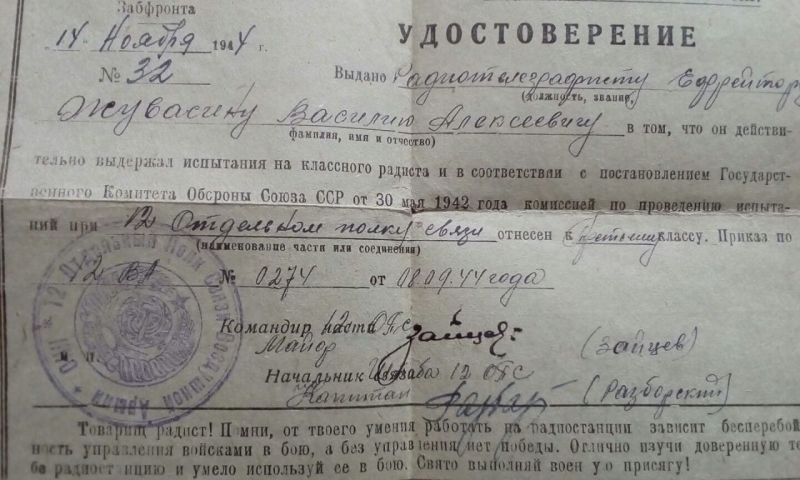 Забфронта
14 Ноября 1944 г.
УДОСТОВЕРЕНИЕ
№ 32 Выдано Радиотелеграфисту Ефрейтору
(должность, звание,
Жувасину Василию Алексеевичу в том, что он действи-
фамилия, имя и отчество)
тельно выдержал испытания на классного радиста и в соответствии с постановлением Государст-
венного Комитета Обороны Союза ССР от 30 мая 1942 года комиссией по проведению испыта-
ний при 12 Отдельном полку связи отнесен к третьему классу. Приказ по
(наименование части или соединения)
12 ВА № 0274 от 08.09.44 года
Командир части 12 ОПС
Майор Зайцев (Зайцев)
М. П.
Начальник штаба 12 ОПС
Капитан (Разборский)
12 Отдельный Полк Связи Воздушной Армии
Товарищ радист! Помни, от твоего умения работать на радпостанции зависит бесперебой
ность управления войсками в бою, а без управления нет победы. Отлично изучи доверенную те
бе радиост нцию и умело используй ее в бою. Свято выполняй воен ую присягу!